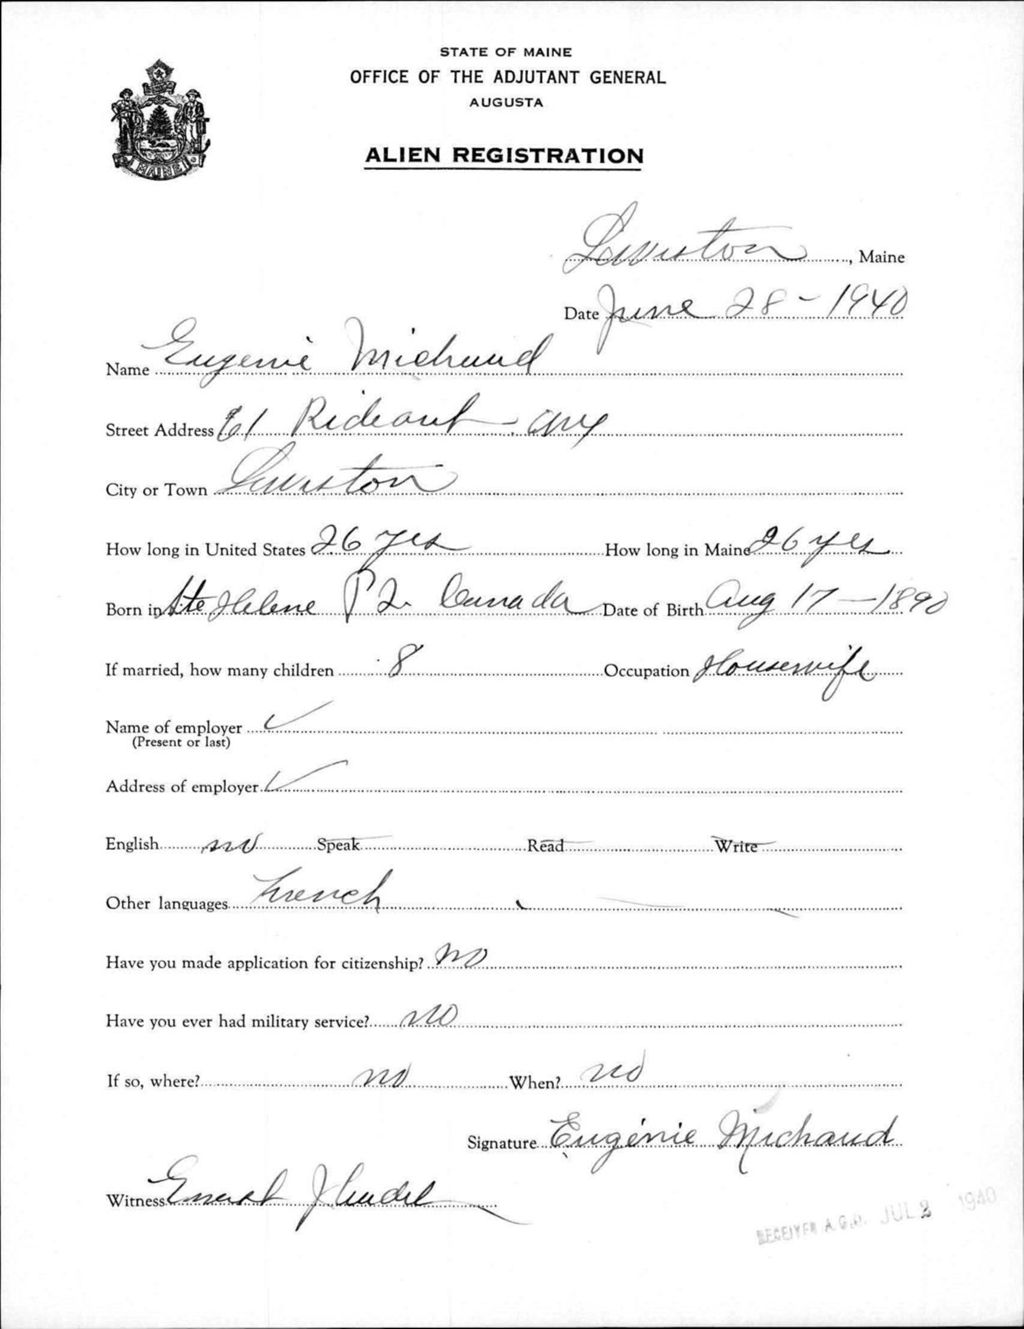 STATE OF MAINE
OFFICE OF THE ADJUTANT GENERAL
AUGUSTA
ALIEN REGISTRATION
MAINE
Lewiston, Maine
Date June 28 - 1940
Name Eugenie Michaud
Street Address 61 Rideout Ave
City or Town Lewiston
How long in United States 26 yes How long in Maine 26 yes
Born in Ste Helene P Q Canada Date of Birth Aug 17 - 1890
If married, how many children 8 Occupation Housewife
Name of employer ✓
(Present or last)
Address of employer ✓
English no Speak Read Write
Other languages French
Have you made application for citizenship? No
Have you ever had military service? No
If so, where? no When? no
Signature Eugénie Michaud
Witness Ernest J
RECEIVED A.G.O. JUL 2 1940